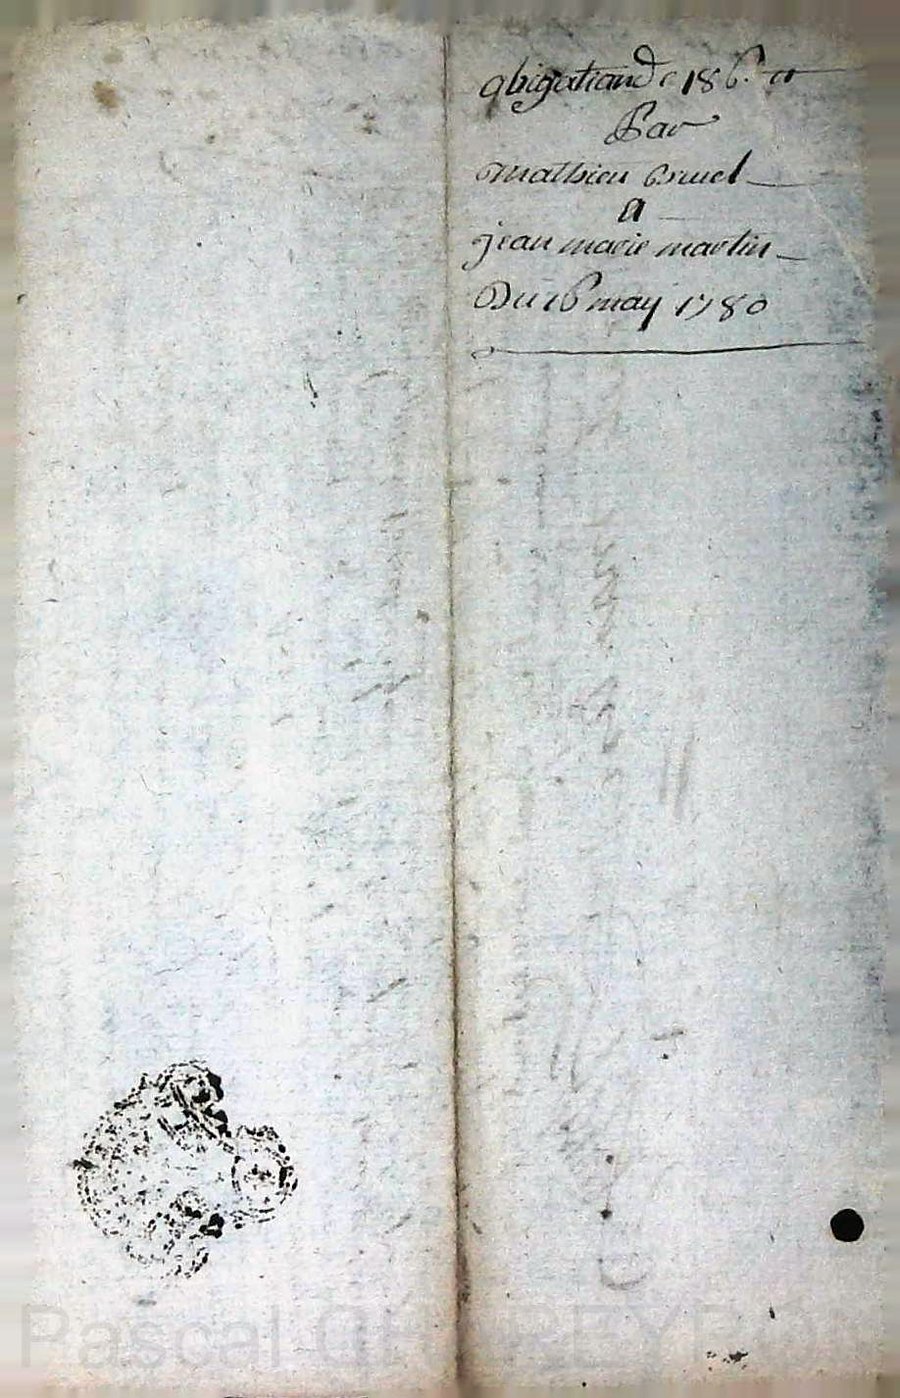 obigation de 186#
Par
mathieu Bruel
A
jean marie martin
Du 16 may 1780
Pascal CHAREYRON